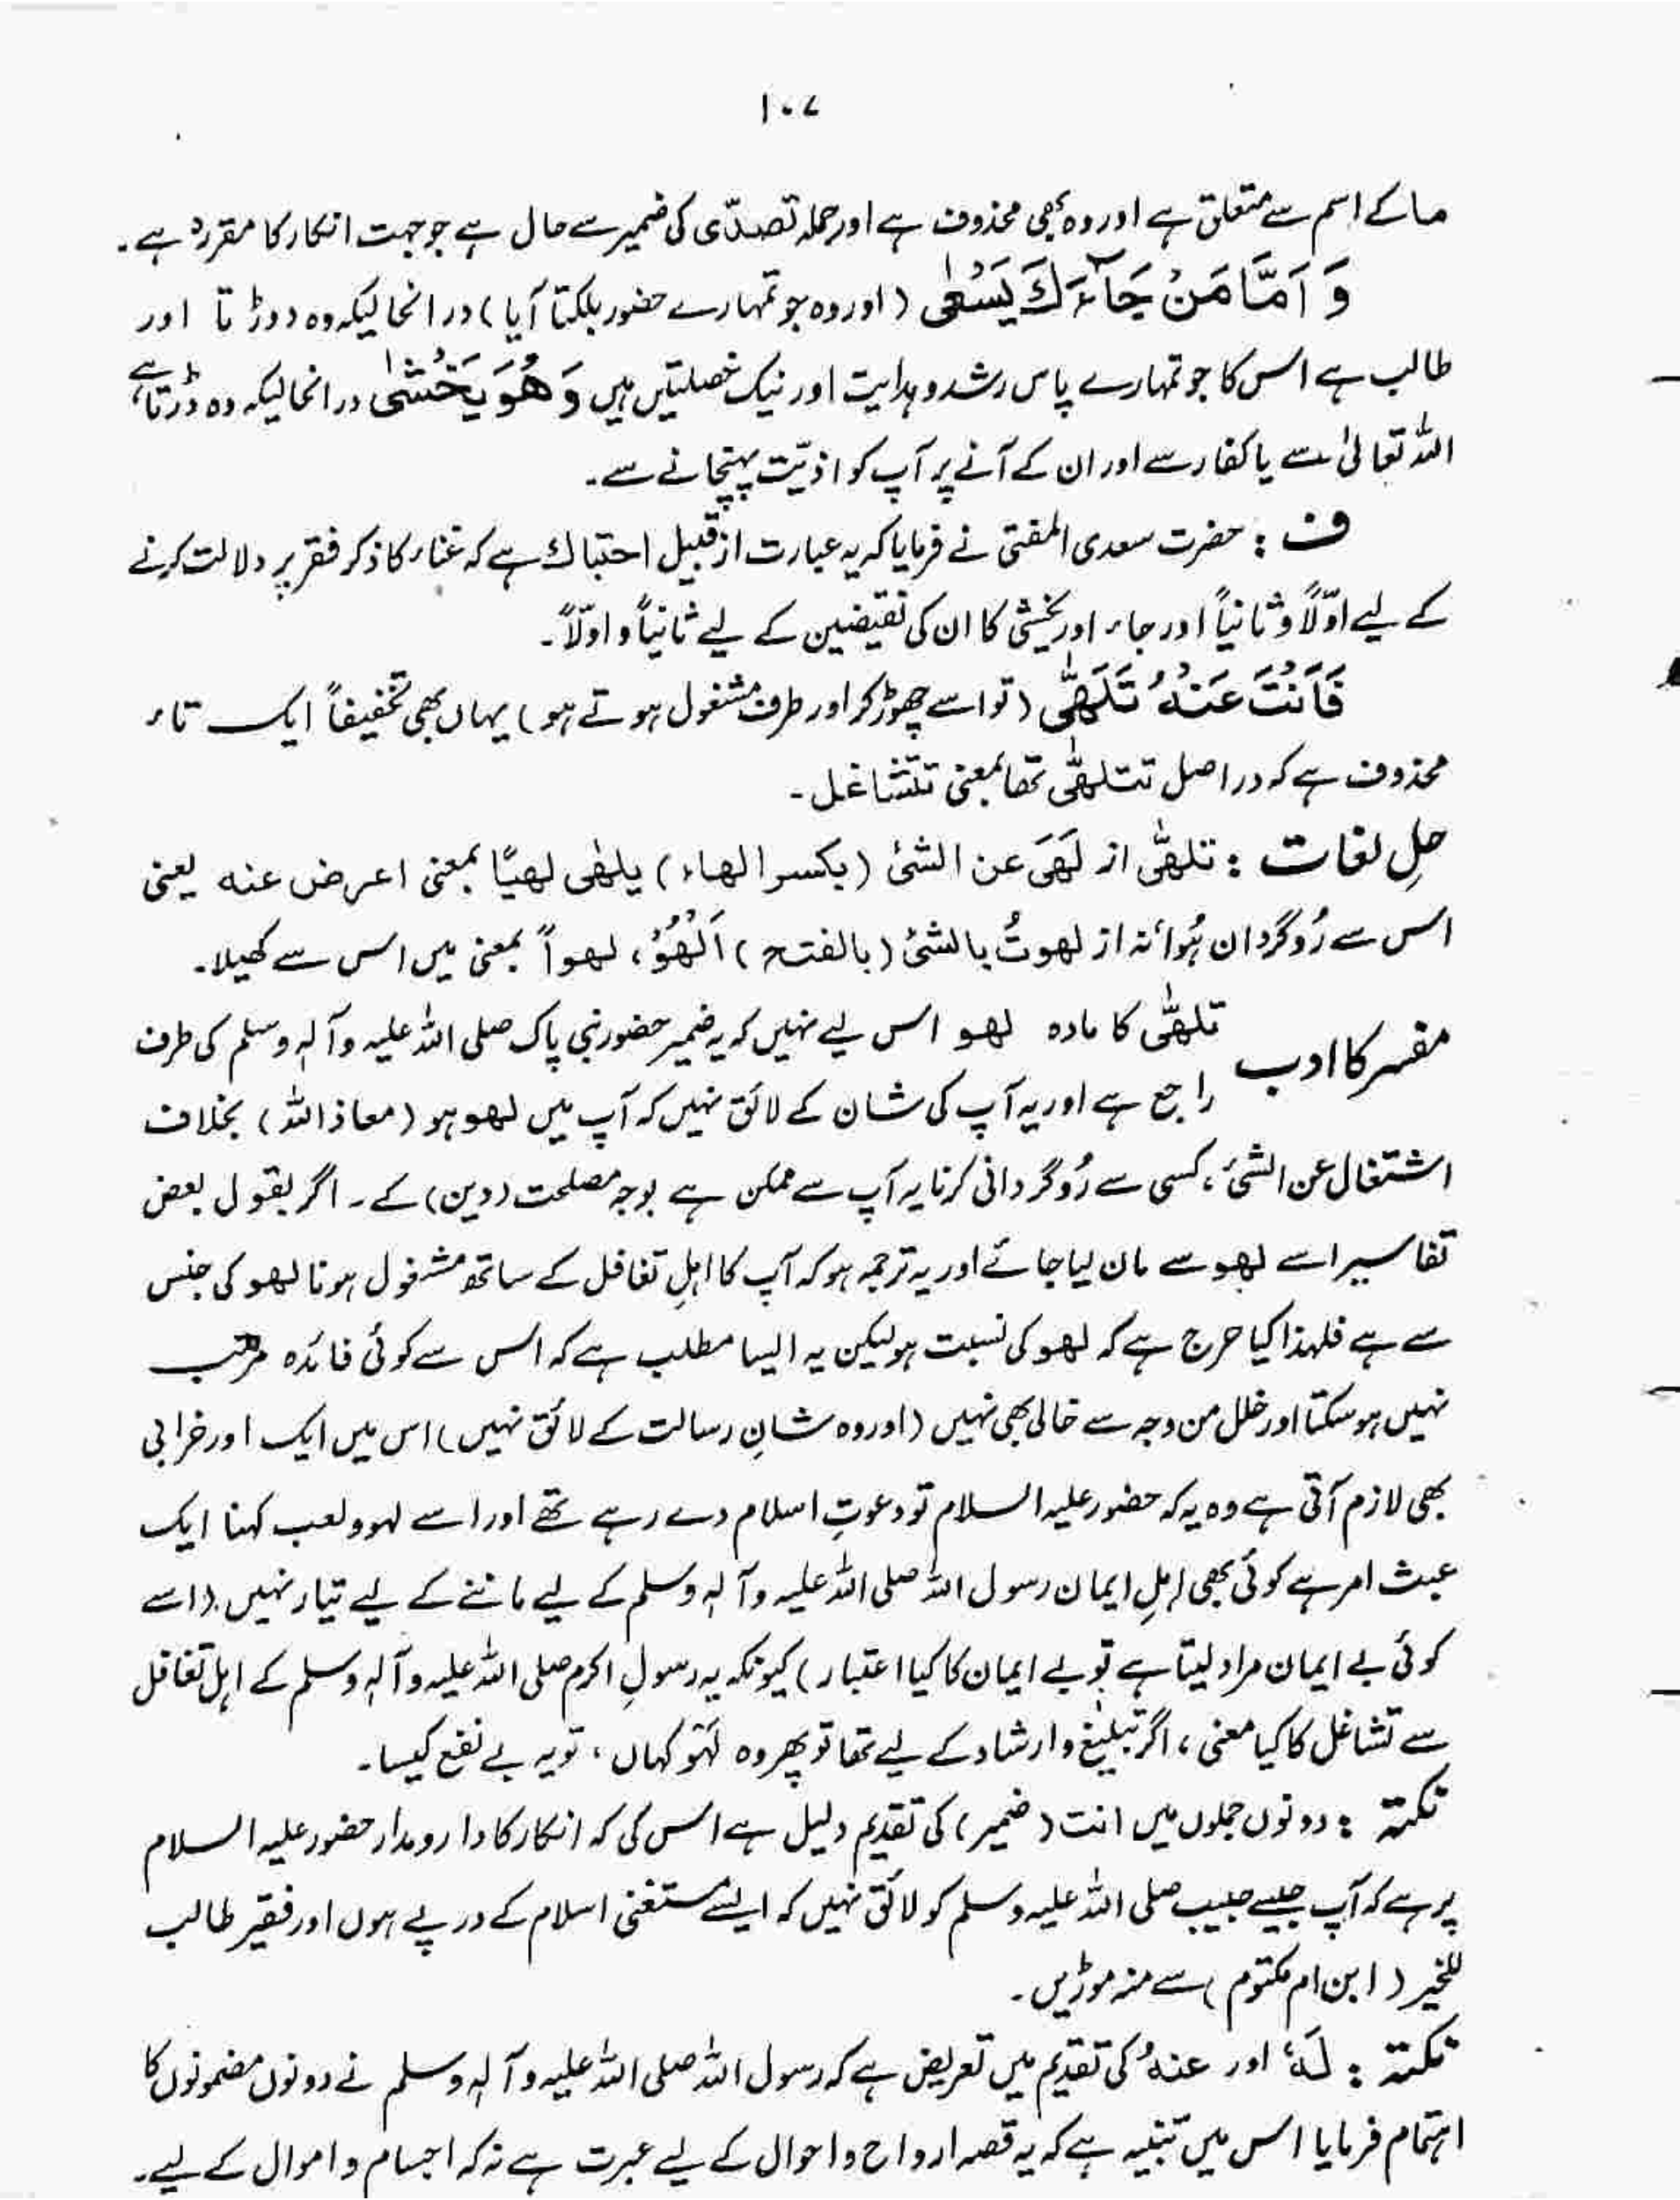 ۱۰۷
ما کے اسم سے متعلق ہے اور وہ بھی محذوف ہے اور جملہ تصدّی کی ضمیر سے حال ہے جو جہت انکار کا مقرر ہے۔
وَ اَمَّا مَنْ جَآءَكَ یَسْعٰی (اور وہ جو تمہارے حضور بلکتا آیا) در انحالیکہ وہ دوڑتا اور
طالب ہے اس کا جو تمہارے پاس رشد و ہدایت اور نیک خصلتیں ہیں وَ هُوَ یَخْشٰی در انحالیکہ وہ ڈرتا ہے
اللہ تعالیٰ سے یا کفار سے اور ان کے آنے پر آپ کو اذیّت پہنچانے سے۔
ف : حضرت سعدی المفتی نے فرمایا کہ یہ عبارت از قبیل احتباك ہے کہ غناء کا ذکر فقر پر دلالت کرنے
کے لیے اوّلاً و ثانیاً اور جاء اور یخشٰی کا ان کی نقیضین کے لیے ثانیاً و اوّلاً۔
فَاَنْتَ عَنْهُ تَلَهّٰی (تو اسے چھوڑ کر اور طرف مشغول ہوتے ہو) یہاں بھی تخفیفاً ایک تاء
محذوف ہے کہ در اصل تتلهّٰی تھا بمعنی تتشاغل۔
حلِ لغات : تلهّٰی از لَهَیَ عن الشیٔ (بکسر الهاء) یلهٰی لهیًا بمعنی اعرض عنه یعنی
اس سے رُوگردان ہُوا نہ از لهوتُ بالشیٔ (بالفتح) اَلْهُوْ، لهواً بمعنی میں اس سے کھیلا۔
مفسر کا ادب تلهّٰی کا مادہ لھو اس لیے نہیں کہ یہ ضمیر حضور نبی پاک صلی اللہ علیہ وآلہٖ وسلم کی طرف
راجع ہے اور یہ آپ کی شان کے لائق نہیں کہ آپ میں لھو ہو (معاذ اللہ) بخلاف
اشتغال عن الشیٔ ، کسی سے رُوگردانی کرنا یہ آپ سے ممکن ہے بوجہ مصلحت (دین) کے ۔ اگر بقول بعض
تفاسیر اسے لھو سے مان لیا جائے اور یہ ترجمہ ہو کہ آپ کا اہلِ تغافل کے ساتھ مشغول ہونا لھو کی جنس
سے ہے فلہٰذا کیا حرج ہے کہ لھو کی نسبت ہو لیکن یہ ایسا مطلب ہے کہ اس سے کوئی فائدہ مرتب
نہیں ہو سکتا اور خلل من وجہ سے خالی بھی نہیں (اور وہ شانِ رسالت کے لائق نہیں) اس میں ایک اور خرابی
بھی لازم آتی ہے وہ یہ کہ حضور علیہ السلام تو دعوتِ اسلام دے رہے تھے اور اسے لہو و لعب کہنا ایک
عبث امر ہے کوئی بھی اہلِ ایمان رسول اللہ صلی اللہ علیہ وآلہٖ وسلم کے لیے ماننے کے لیے تیار نہیں (اسے
کوئی بے ایمان مراد لیتا ہے تو بے ایمان کا کیا اعتبار) کیونکہ یہ رسولِ اکرم صلی اللہ علیہ وآلہٖ وسلم کے اہلِ تغافل
سے تشاغل کا کیا معنی ، اگر تبلیغ و ارشاد کے لیے تھا تو پھر وہ لہو کہاں ، تو یہ بے نفع کیسا۔
نکتہ : دونوں جملوں میں انت (ضمیر) کی تقدیم دلیل ہے اس کی کہ انکار کا دارومدار حضور علیہ السلام
پر ہے کہ آپ جیسے حبیب صلی اللہ علیہ وسلم کو لائق نہیں کہ ایسے مستغنی اسلام کے درپے ہوں اور فقیر طالب
للخیر (ابن ام مکتوم) سے منہ موڑیں۔
نکتہ : لَهٗ اور عنهُ کی تقدیم میں تعریض ہے کہ رسول اللہ صلی اللہ علیہ وآلہٖ وسلم نے دونوں مضمونوں کا
اہتمام فرمایا اس میں تنبیہ ہے کہ یہ قصہ ارواح و احوال کے لیے عبرت ہے نہ کہ اجسام و اموال کے لیے۔